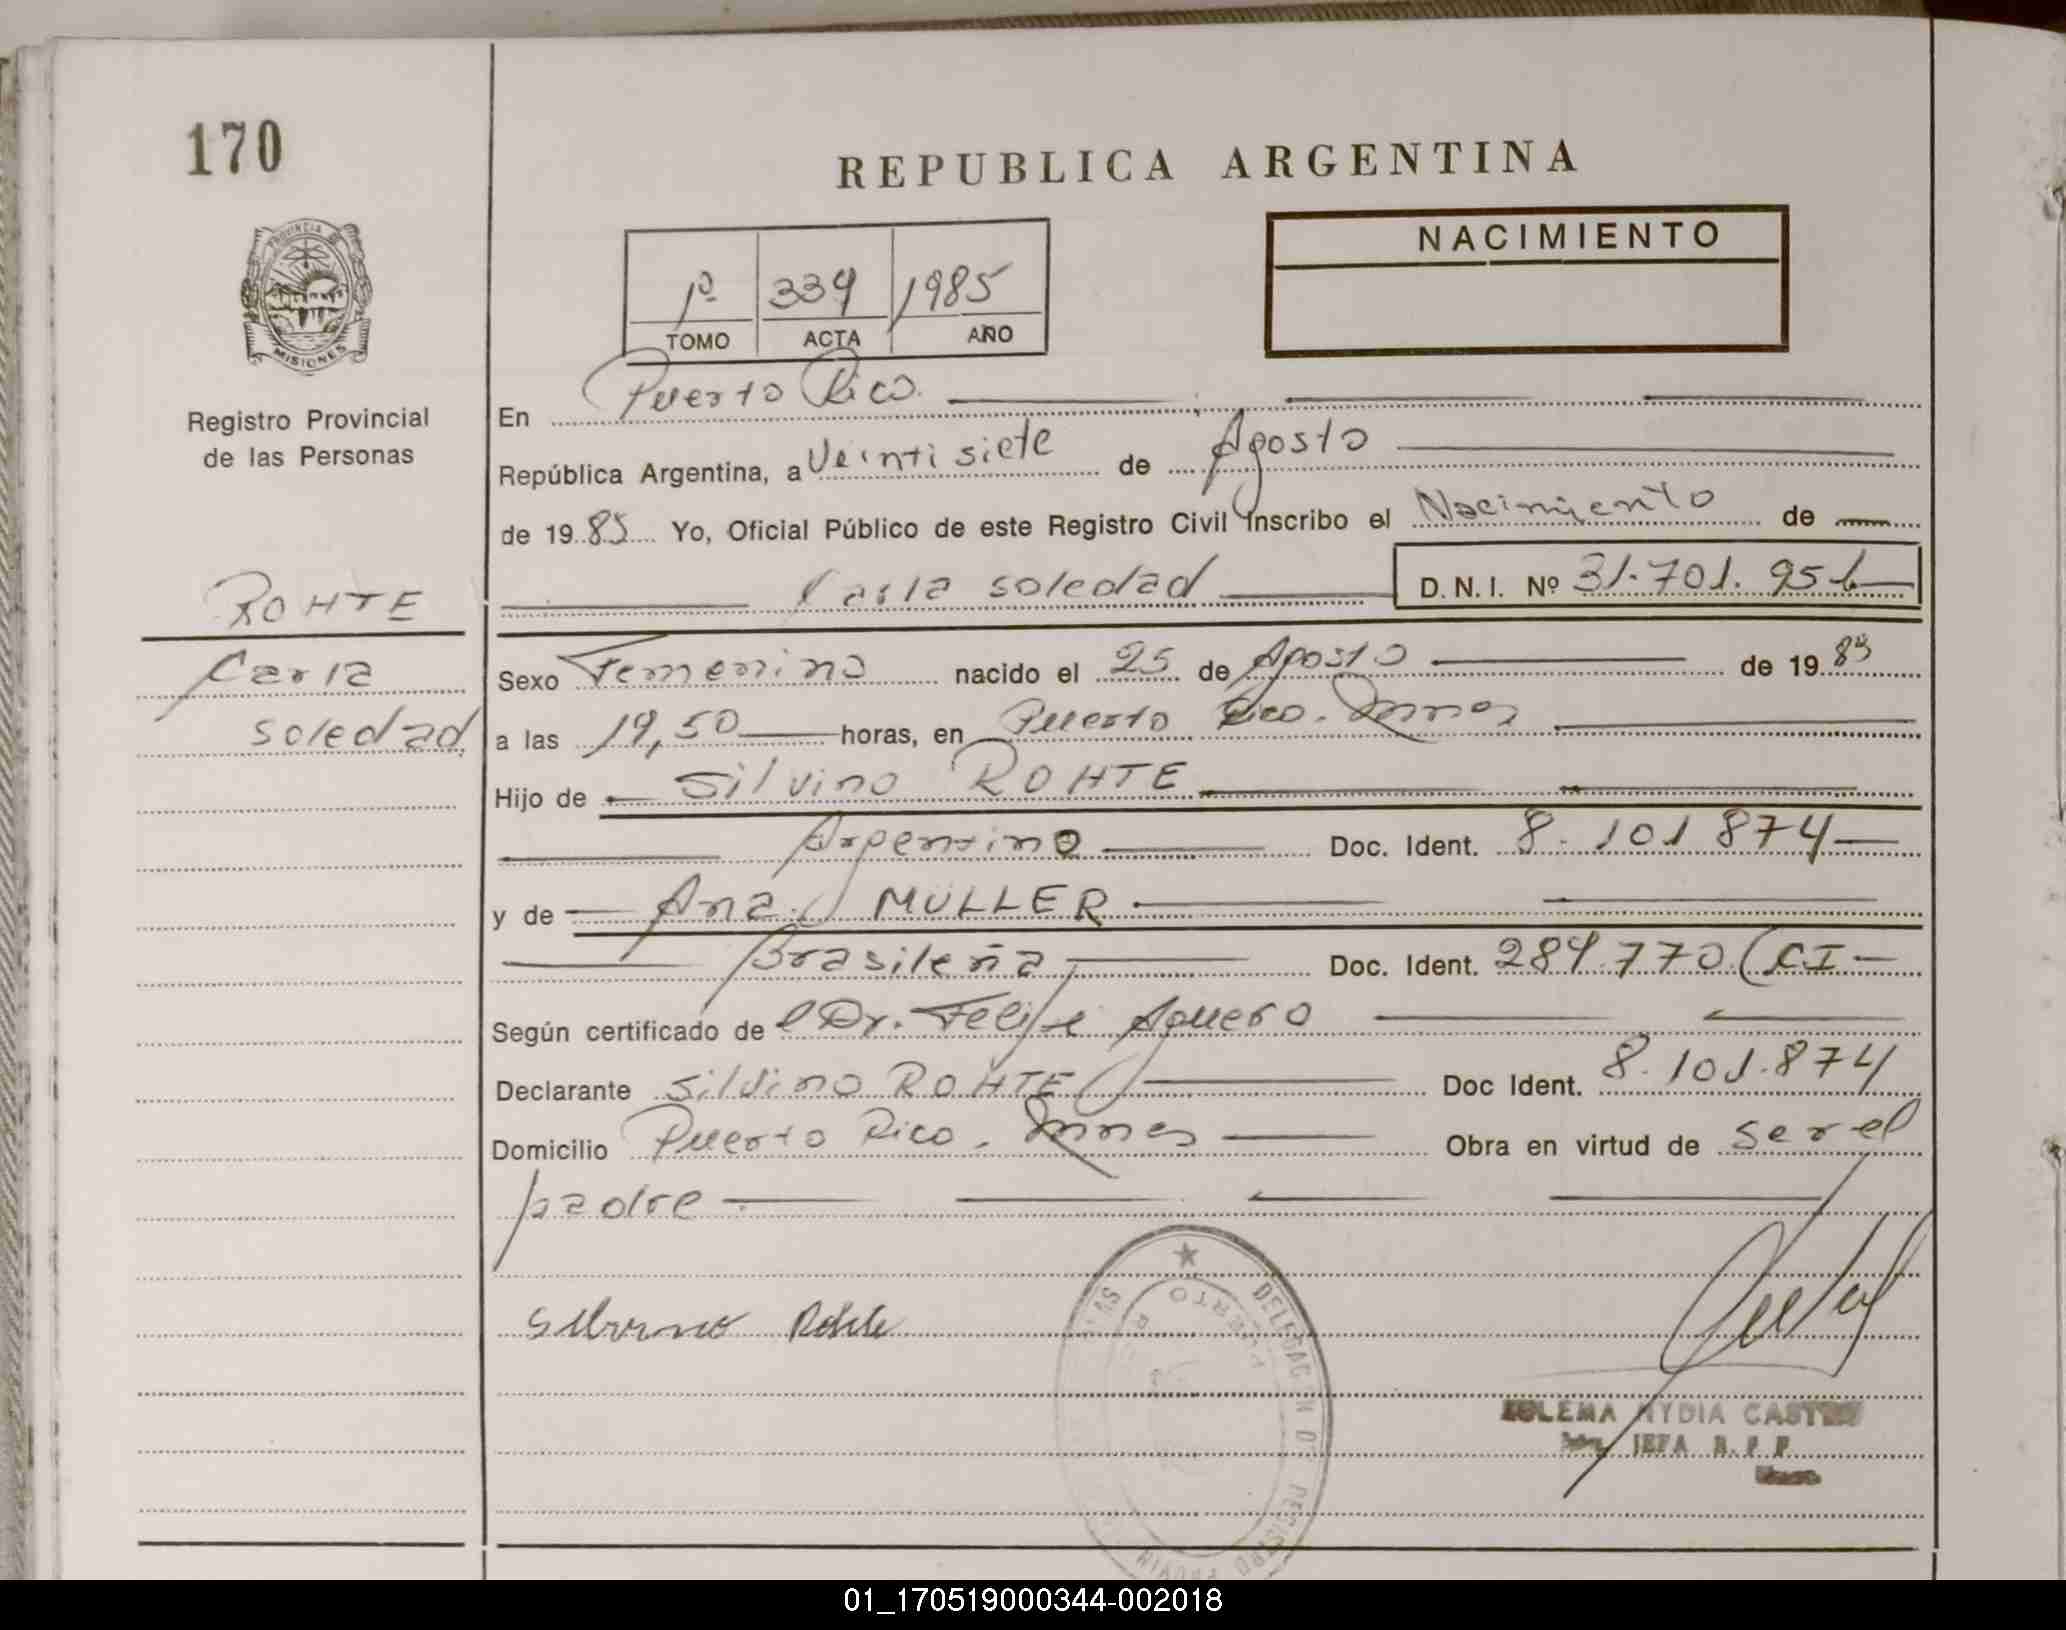 170
REPUBLICA ARGENTINA
NACIMIENTO
1º 339 1985
TOMO ACTA AÑO
PROVINCIA DE
MISIONES
Registro Provincial
de las Personas
En Puerto Rico.
República Argentina, a Veintisiete de Agosto
de 1985 Yo, Oficial Público de este Registro Civil Inscribo el Nacimiento de
Carla soledad D.N.I. Nº 31.701.956
ROHTE
Carla
soledad
Sexo Femenino nacido el 25 de Agosto de 1985
a las 19,50 horas, en Puerto Rico. Mnes
Hijo de Silvino ROHTE
Argentino Doc. Ident. 8.101.874
y de Ana MULLER
Brasileña Doc. Ident. 289.770 (CI
Según certificado de el Dr. Felipe Aguero
Declarante Silvino ROHTE Doc Ident. 8.101.874
Domicilio Puerto Rico. Mnes Obra en virtud de ser el
padre
Silvino Rohte
DELEGACION DE REGISTRO PROVIN
PUERTO R
NYDIA CASTRO
JEFA R.P.P
01_170519000344-002018